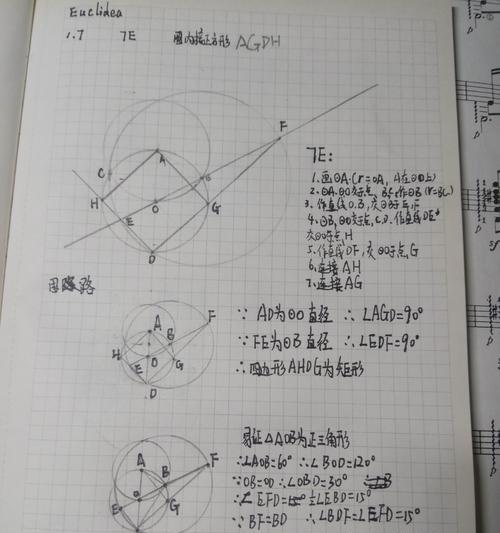 Euclidea
1.7 7E 圆内接正方形 AGDH
F
A
C
B
H
O
G
E
D
7E:
1. 画⊙A (r=OA, A在⊙O上)
2. ⊙A, ⊙O交于点 B, C 作⊙B (r=BC)
3. 作直线O, B, 交⊙B于E, F
4. ⊙B, ⊙O交于点 C, D. 作直线DE
交⊙O于点 H
5. 作直线 DF, 交⊙O于点 G
6. 连接 AH
7. 连接 AG
思路
A
B
F
H
O
E
G
D
∵ AD为⊙O直径 ∴ ∠AGD=90°
∵ FE为⊙B直径 ∴ ∠EDF=90°
∴ 四边形AHDG为矩形
A
B
F
O
E
G
易证△AOB为正三角形
∴∠AOB=60° ∴∠BOD=120°
∵OB=OD ∴∠OBD=30°
∴∠EFD= ½∠EBD=15°
∵ BF=BD ∴∠BDF=∠EFD=15°